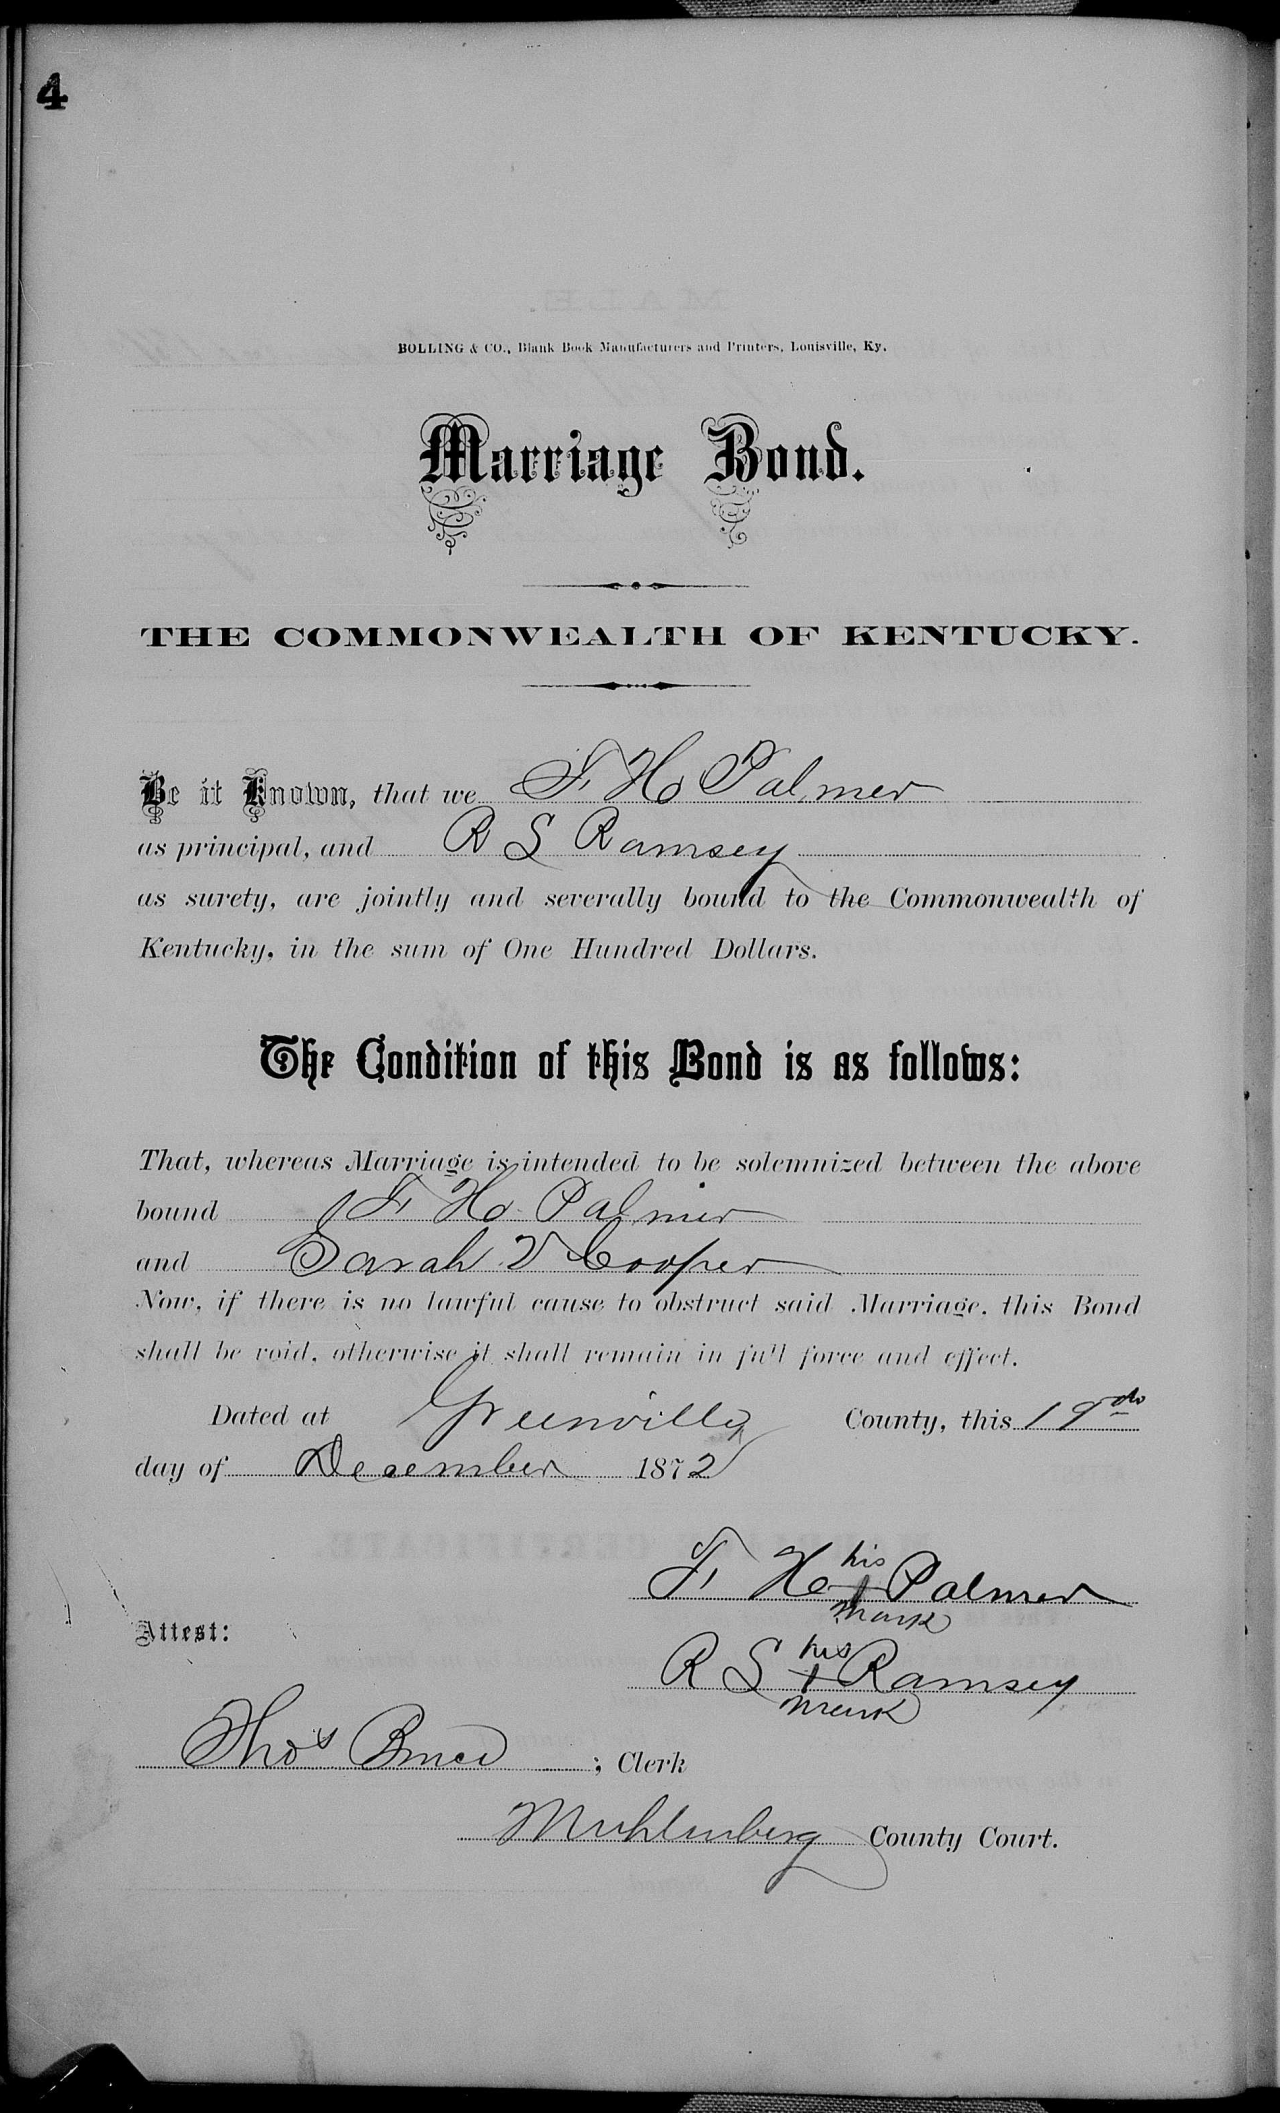 4
BOLLING & CO., Blank Book Manufacturers and Printers, Louisville, Ky.
Marriage Bond.
THE COMMONWEALTH OF KENTUCKY.
Be it Known, that we F. H. Palmer
as principal, and R S Ramsey
as surety, are jointly and severally bound to the Commonwealth of
Kentucky, in the sum of One Hundred Dollars.
The Condition of this Bond is as follows:
That, whereas Marriage is intended to be solemnized between the above
bound F. H. Palmer
and Sarah V Cooper
Now, if there is no lawful cause to obstruct said Marriage, this Bond
shall be void, otherwise it shall remain in full force and effect.
Dated at Greenville County, this 19
day of December 1872
F H his Palmer
mark
Attest:
R S his Ramsey
mark
Thos Bruce ; Clerk
Muhlenberg County Court.